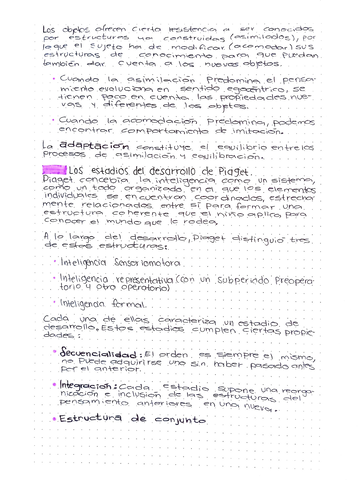 Los objetos ofrecen cierta resistencia a ser conocidos
por estructuras ya construidas (asimilados), por
lo que el sujeto ha de modificar (acomodar) sus
estructuras de conocimiento para que puedan
también dar cuenta a los nuevos objetos.
· Cuando la asimilación predomina el pensa-
miento evoluciona en sentido egocéntrico, se
tienen poco en cuenta las propiedades nue-
vas y diferentes de los objetos.
· Cuando la acomodación predomina, podemos
encontrar comportamiento de imitación.
La adaptación constituye el equilibrio entre los
procesos de asimilación y equilibración.
Los estadios del desarrollo de Piaget.
Piaget concebía la inteligencia como un sistema,
como un todo organizado en el que los elementos
individuales se encuentran coordinados, estrecha
mente relacionados entre sí para formar una
estructura coherente que el niño aplica para
conocer el mundo que le rodea.
A lo largo del desarrollo, Piaget distinguió tres
de estas estructuras:
· Inteligencia sensoriomotora
· Inteligencia representativa (con un subperiodo Preopera-
torio y otro operatorio)
· Inteligencia formal.
Cada una de ellas caracteriza un estadio de
desarrollo. Estos estadios cumplen ciertas propie-
dades:
· Secuencialidad: El orden es siempre el mismo,
no puede adquirirse uno sin haber pasado antes
por el anterior.
· Integración: Cada estadio supone una reorga-
nización e inclusión de las estructuras del
pensamiento anteriores en una nueva.
· Estructura de conjunto